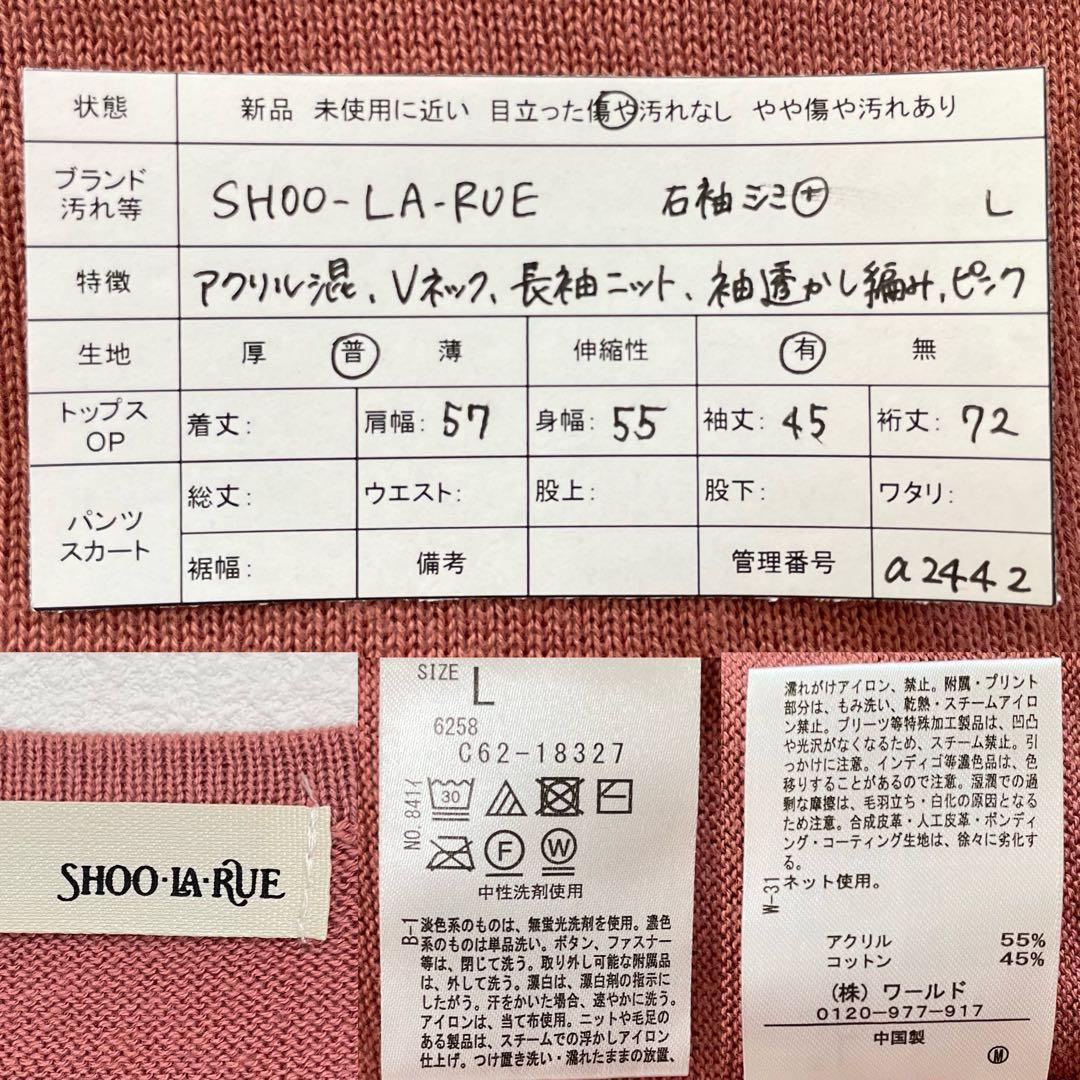 状態 新品 未使用に近い 目立った傷や汚れなし やや傷や汚れあり
ブランド
汚れ等 SHOO-LA-RUE 右袖シミ小 L
特徴 アクリル混、Vネック、長袖ニット、袖透かし編み、ピンク
生地 厚 普 薄 伸縮性 有 無
トップス
OP 着丈: 肩幅: 57 身幅: 55 袖丈: 45 裄丈: 72
パンツ
スカート 総丈: ウエスト: 股上: 股下: ワタリ:
裾幅: 備考 管理番号 a2442
SHOO·LA·RUE
SIZE L
6258
C62-18327
NO.841イ
30
F W
中性洗剤使用
B-1
淡色系のものは、無蛍光洗剤を使用。濃色
系のものは単品洗い。ボタン、ファスナー
等は、閉じて洗う。取り外し可能な附属品
は、外して洗う。漂白は、漂白剤の指示に
したがう。汗をかいた場合、速やかに洗う。
アイロンは、当て布使用。ニットや毛足の
ある製品は、スチームでの浮かしアイロン
仕上げ。つけ置き洗い・濡れたままの放置、
濡れがけアイロン、禁止。附属・プリント
部分は、もみ洗い、乾熱・スチームアイロ
ン禁止。プリーツ等特殊加工製品は、凹凸
や光沢がなくなるため、スチーム禁止。引
っかけに注意。インディゴ等濃色品は、色
移りすることがあるので注意。湿潤での過
剰な摩擦は、毛羽立ち・白化の原因となる
ため注意。合成皮革・人工皮革・ボンディ
ング・コーティング生地は、徐々に劣化す
る。
W-31
ネット使用。
アクリル 55%
コットン 45%
(株) ワールド
0120-977-917
中国製
M